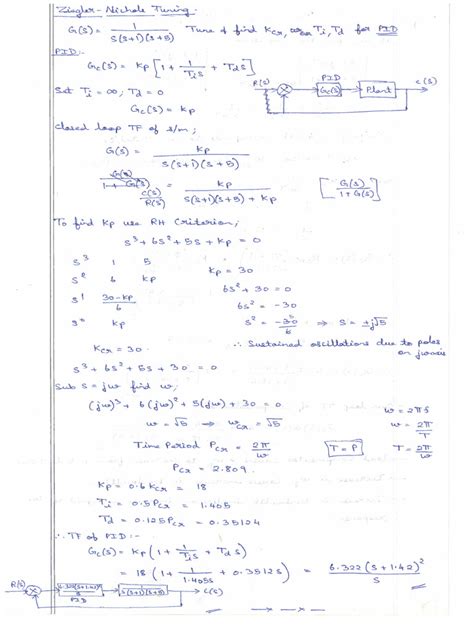 Ziegler-Nichols Tuning.
G(s) = 1 / s(s+1)(s+5) Tune & find Kcr, Ti, Td for PID
PID:-
Gc(s) = Kp [1 + 1/Tis + Tds]
Set Ti = ∞; Td = 0
Gc(s) = Kp
R(s) PID Gc(s) Plant C(s)
Closed loop TF of s/m;
G(s) = Kp / s(s+1)(s+5)
C(s)/R(s) = Kp / s(s+1)(s+5) + Kp [G(s) / 1+G(s)]
To find Kp use RH Criterion;
s³ + 6s² + 5s + Kp = 0
s³ 1 5
s² 6 Kp
s¹ 30-Kp / 6
s⁰ Kp
Kp = 30
6s² + 30 = 0
6s² = -30
s² = -30/6 ⇒ s = ±j√5
Kcr = 30
∴ Sustained oscillations due to poles
on jw axis
s³ + 6s² + 5s + 30 = 0
Sub s = jw find w;
(jw)³ + 6(jw)² + 5(jw) + 30 = 0
w = √5 ⇒ wcr = √5
w = 2πf
w = 2π/T
T = 2π/w
Time Period Pcr = 2π/w T = P
Pcr = 2.809.
Kp = 0.6Kcr = 18
Ti = 0.5Pcr = 1.405
Td = 0.125Pcr = 0.35124
∴ TF of PID:-
Gc(s) = Kp (1 + 1/Tis + Td s)
= 18 (1 + 1/1.405s + 0.3512s) = 6.322(s+1.42)² / s
R(s) 6.322(s+1.42)² / s PID 1 / s(s+1)(s+5) C(s)